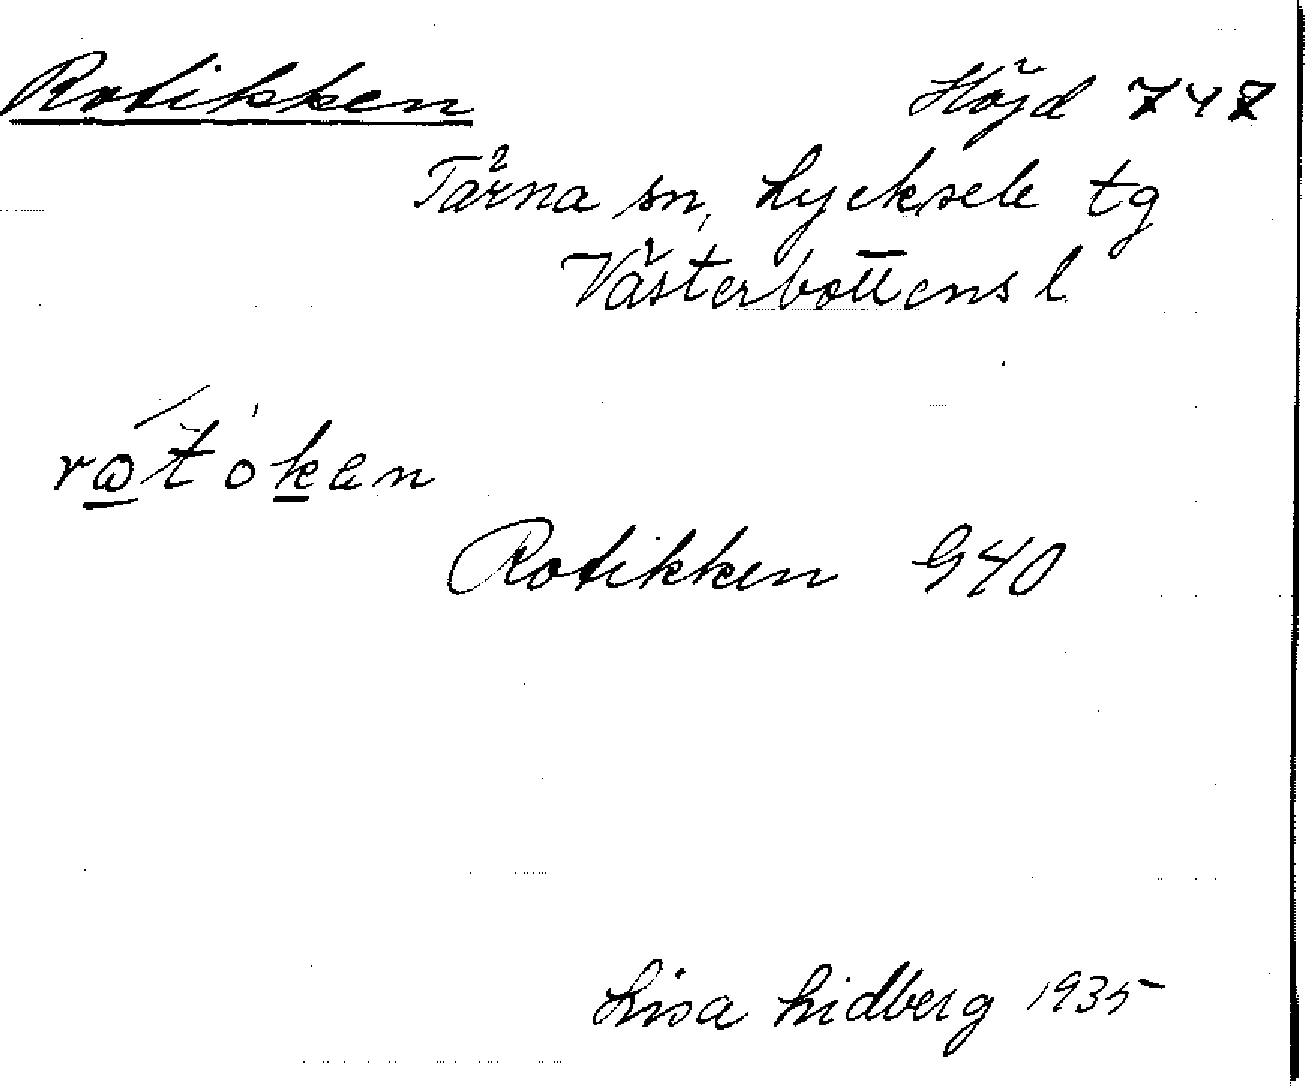 Rotikken Höjd 747
Tärna sn, Lycksele tg
Västerbottens l
ro̲tok̲en
Rotikken G40
Lisa Lidberg 1935